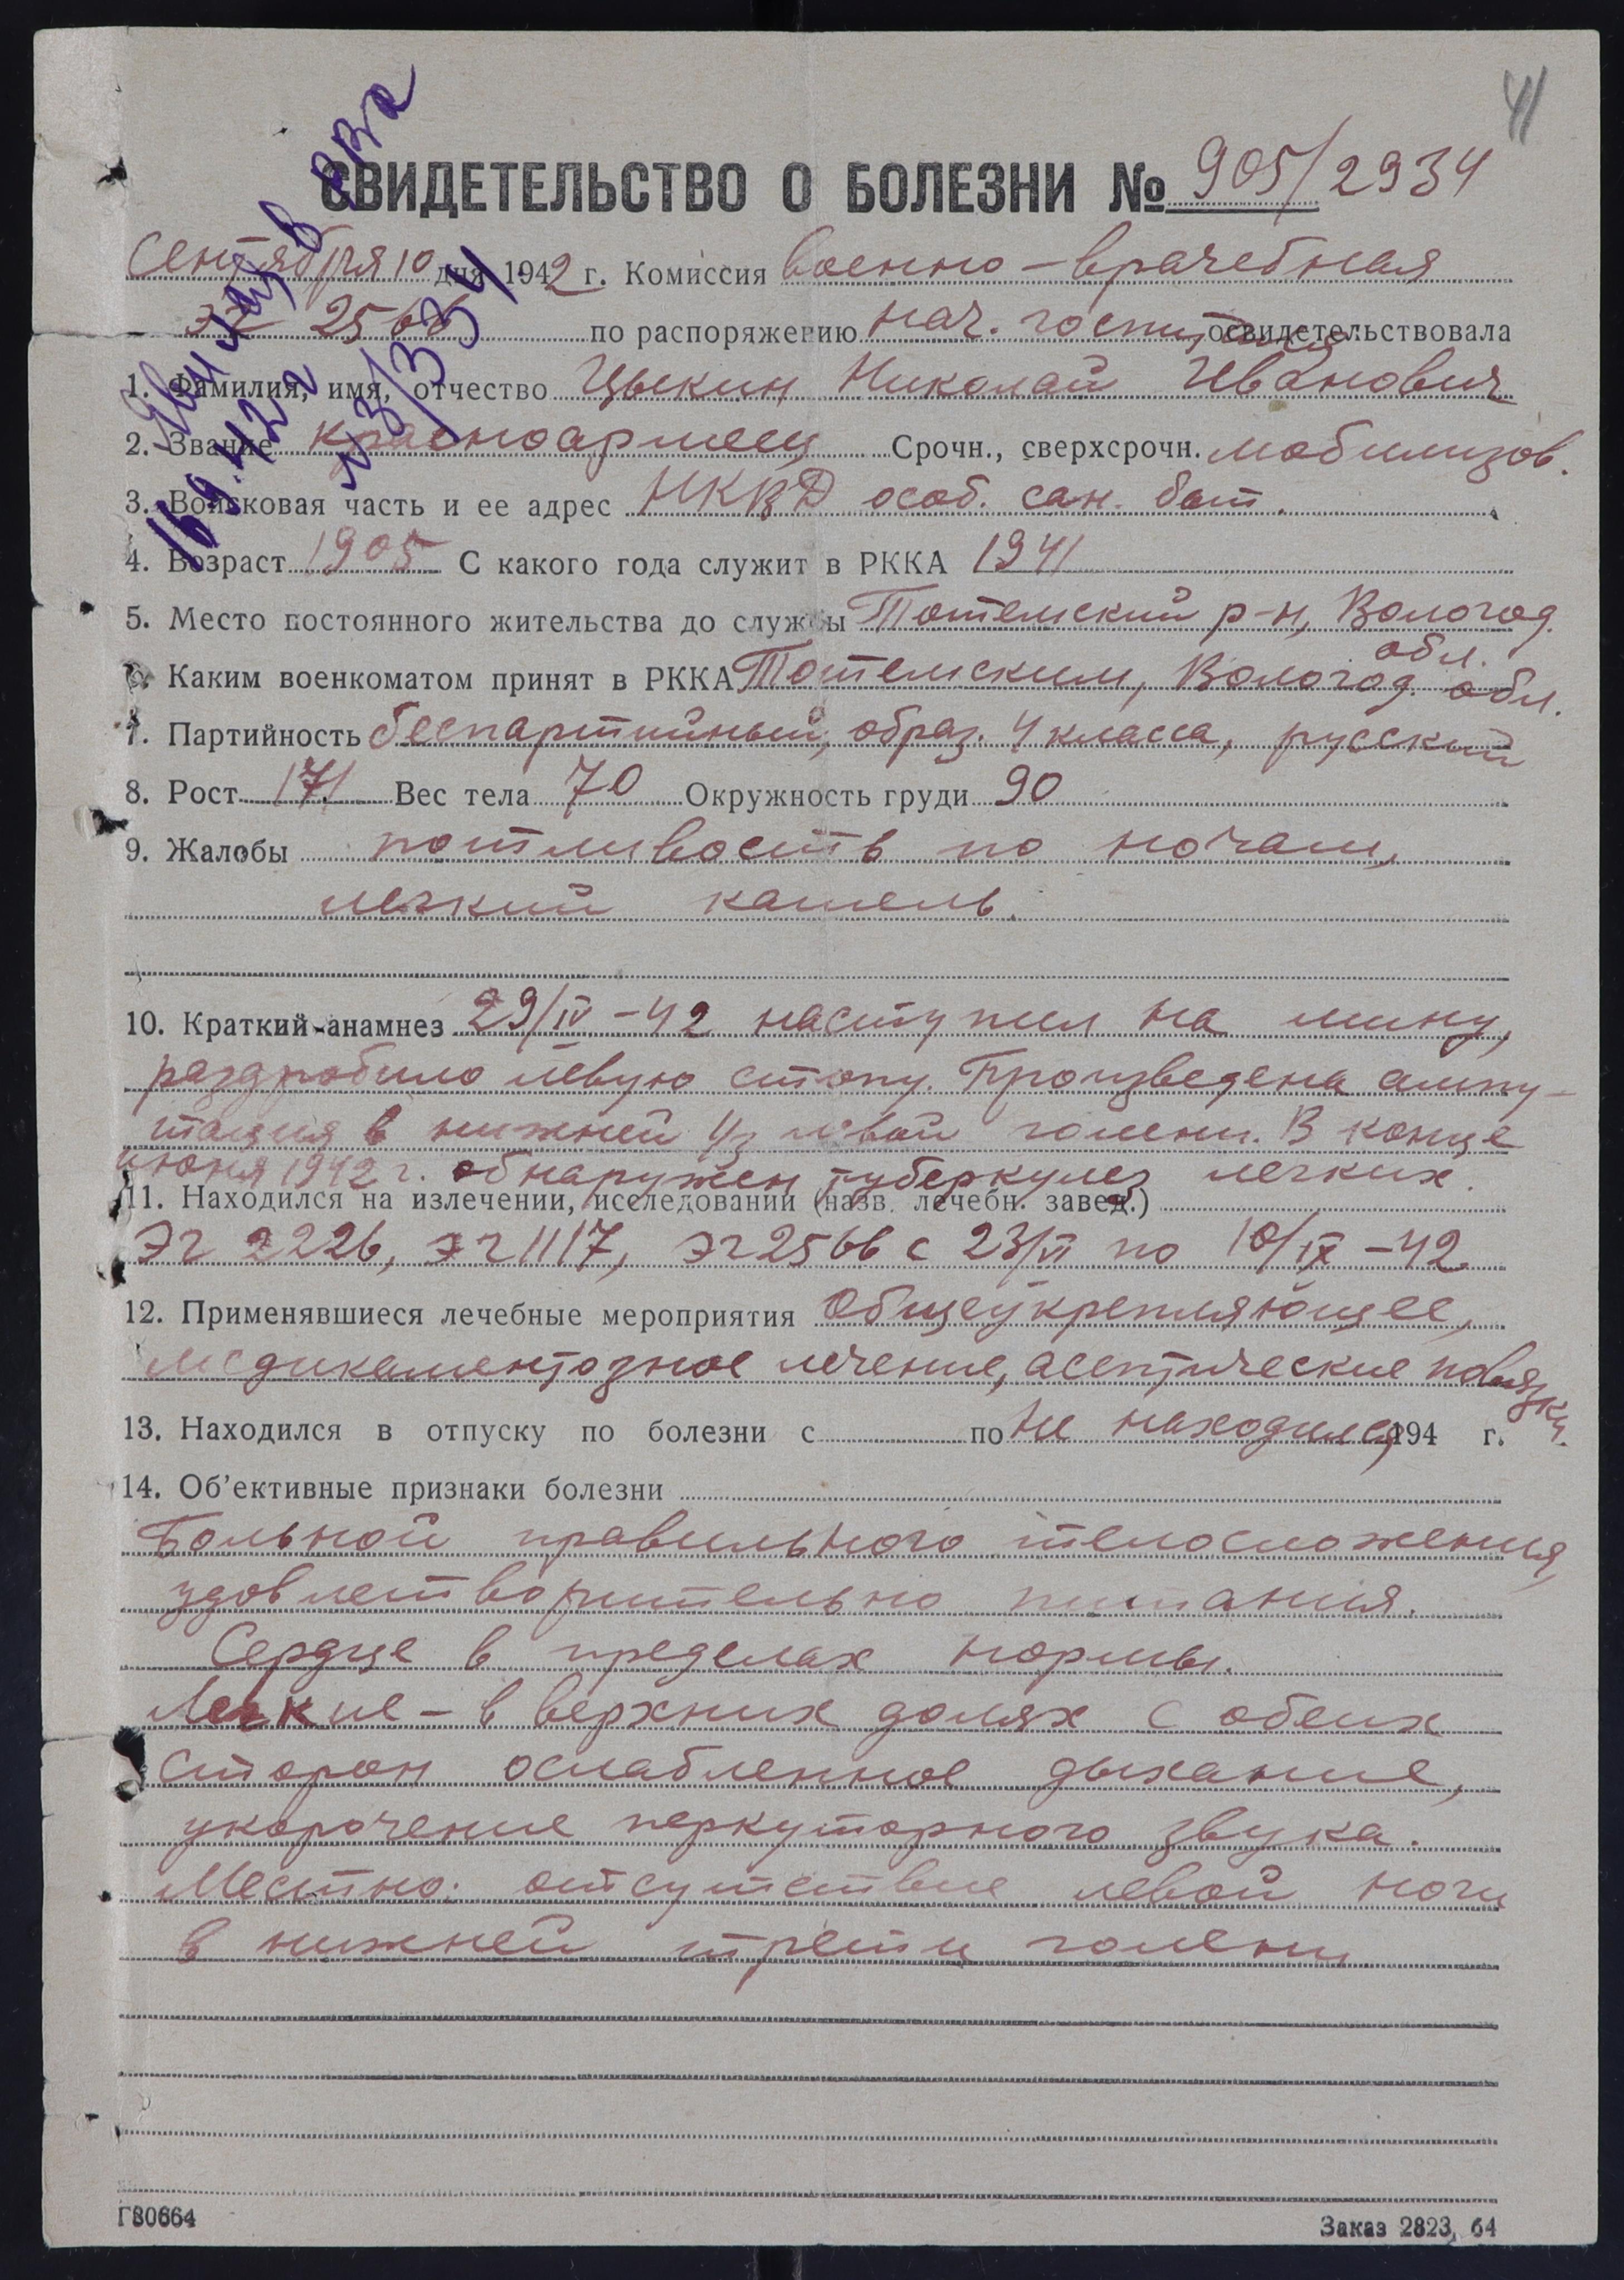 41
СВИДЕТЕЛЬСТВО О БОЛЕЗНИ № 905/2934
Сентября 10 дня 1942 г. Комиссия военно-врачебная
эг 2566 по распоряжению нач. госпиталя освидетельствовала
1. Фамилия, имя, отчество Цыкин Николай Иванович
2. Звание красноармеец Срочн., сверхсрочн. мобилизов.
3. Войсковая часть и ее адрес НКВД особ. сан. бат.
4. Возраст 1905 С какого года служит в РККА 1941
5. Место постоянного жительства до службы Тотемский р-н, Вологод.
обл.
6. Каким военкоматом принят в РККА Тотемским, Вологод. обл.
7. Партийность беспартийный, образ. 4 класса, русский
8. Рост 171 Вес тела 70 Окружность груди 90
9. Жалобы потливость по ночам,
легкий кашель.
10. Краткий анамнез 29/IV-42 наступил на мину,
раздробило левую стопу. Произведена ампу-
тация в нижней 1/3 левой голени. В конце
июня 1942 г. обнаружен туберкулез легких.
11. Находился на излечении, исследовании (назв. лечебн. завед.)
ЭГ 2226, эг 1117, эг 2566 с 23/VI по 10/IX-42.
12. Применявшиеся лечебные мероприятия Общеукрепляющее,
медикаментозное лечение, асептические повязки.
13. Находился в отпуску по болезни с по не находился 194 г.
14. Об'ективные признаки болезни
Больной правильного телосложения,
удовлетворительно питания.
Сердце в пределах нормы.
Легкие – в верхних долях с обеих
сторон ослабленное дыхание,
укорочение перкуторного звука.
Местно: отсутствие левой ноги
в нижней трети голени
Г80664
Заказ 2823, 64
16.9.42 г
№3/334